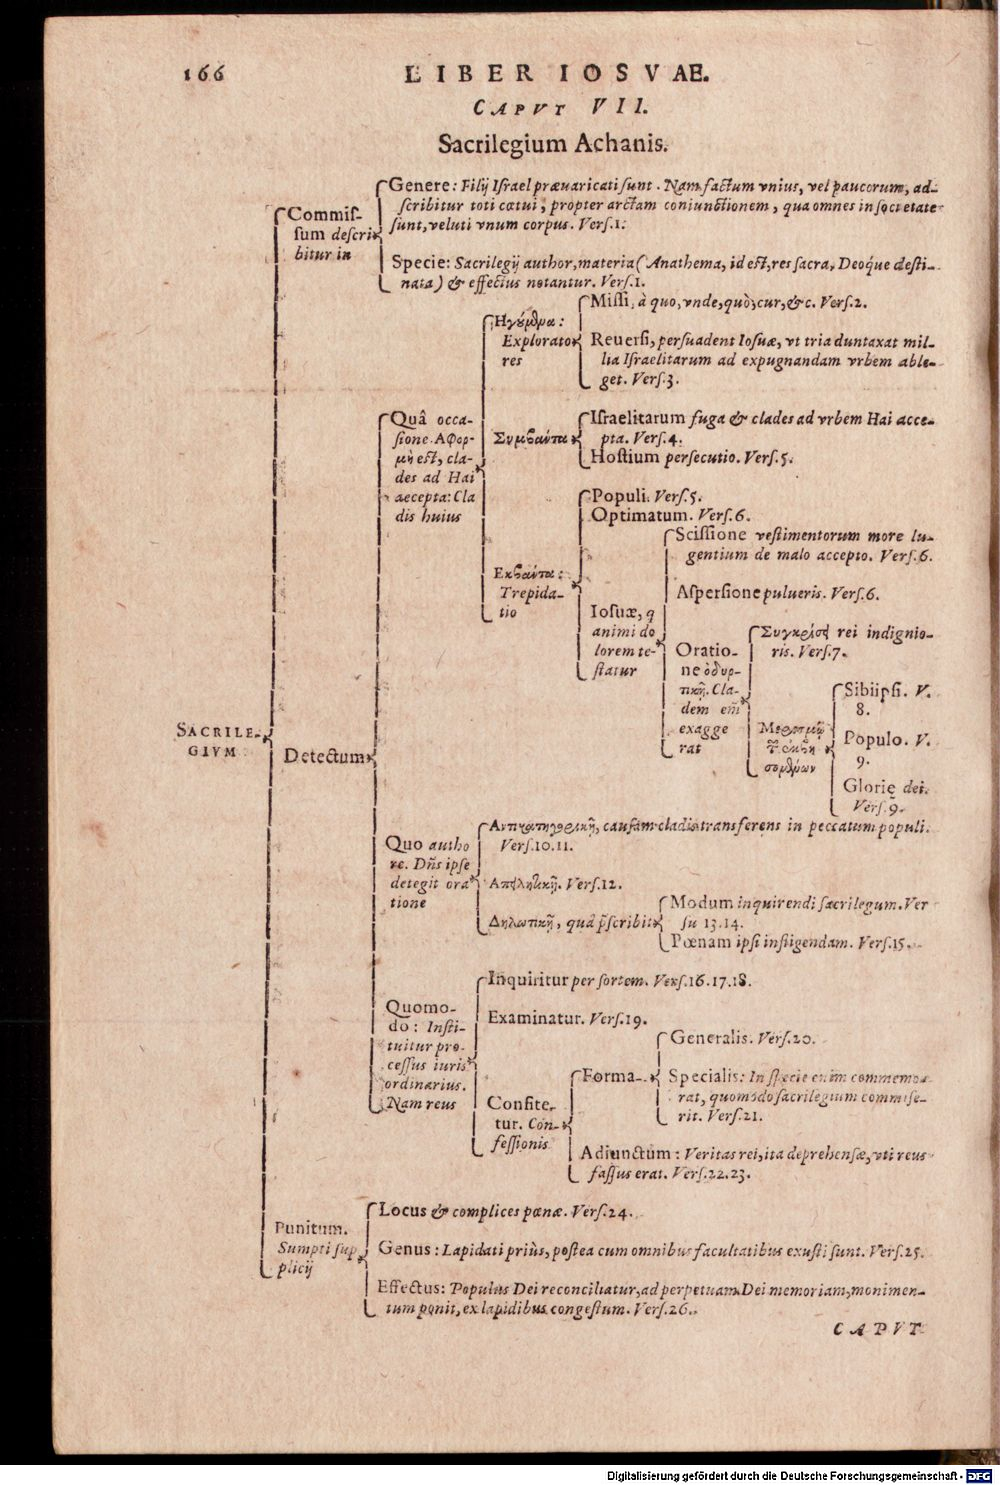 166
LIBER IOSVAE.
CAPVT VII.
Sacrilegium Achanis.
SACRILE-
GIVM
Commiſ-
ſum deſcri
bitur in
Genere: Filij Iſrael præuaricati ſunt. Nam factum vnius, vel paucorum, ad-
ſcribitur toti cœtui, propter arctam coniunctionem, qua omnes in ſocietate
ſunt, veluti vnum corpus. Verſ.1.
Specie: Sacrilegij author, materia (Anathema, id eſt, res ſacra, Deoq́ue deſti-
nata) & effectus notantur. Verſ.1.
Detectum
Quâ occa-
ſione. Αφορ-
μὴ eſt, cla-
des ad Hai
accepta: Cla
dis huius
Ηγούμϑρα:
Explorato
res
Miſſi, à quo, vnde, quò, cur, &c. Verſ.2.
Reuerſi, perſuadent Ioſuæ, vt tria duntaxat mil-
lia Iſraelitarum ad expugnandam vrbem able-
get. Verſ.3.
Συμβαίντα
Iſraelitarum fuga & clades ad vrbem Hai acce-
pta. Verſ.4.
Hoſtium perſecutio. Verſ.5.
Εκβαίντα:
Trepida-
tio
Populi. Verſ.5.
Optimatum. Verſ.6.
Ioſuæ, q
animi do
lorem te-
ſtatur
Sciſſione veſtimentorum more lu-
gentium de malo accepto. Verſ.6.
Aſperſione pulueris. Verſ.6.
Oratio-
ne ὀδυρ-
τικῇ. Cla-
dem em̃
exagge
rat
Συγκρίσει rei indignio-
ris. Verſ.7.
σομϑρων
Sibiipſi. V.
8.
Populo. V.
9.
Glorię dei.
Verſ.9.
Quo autho
re. Dñs ipſe
detegit ora
tione
Αντικατηγορικῇ, cauſam cladis transferens in peccatum populi.
Verſ.10.11.
Απειλητικῇ. Verſ.12.
Δηλωτικῇ, quâ p̃ſcribit
Modum inquirendi ſacrilegum. Ver
ſu 13.14.
Pœnam ipſi infligendam. Verſ.15.
Quomo-
do: Inſti-
tuitur pro-
ceſſus iuris
ordinarius.
Nam reus
Inquiritur per ſortem. Verſ.16.17.18.
Examinatur. Verſ.19.
Confite-
tur. Con-
feſſionis
Forma
Generalis. Verſ.20.
Specialis: In ſpecie enim commemo-
rat, quomodo ſacrilegium commiſe-
rit. Verſ.21.
Adiunctum: Veritas rei, ita deprehenſæ, vti reus
faſſus erat. Verſ.22.23.
Punitum.
Sumpti ſup
plicij
Locus & complices pœnæ. Verſ.24.
Genus: Lapidati priùs, poſtea cum omnibus facultatibus exuſti ſunt. Verſ.25.
Effectus: Populus Dei reconciliatur, ad perpetuam Dei memoriam, monimen-
tum ponit, ex lapidibus congeſtum. Verſ.26.
CAPVT
Digitalisierung gefördert durch die Deutsche Forschungsgemeinschaft - DFG